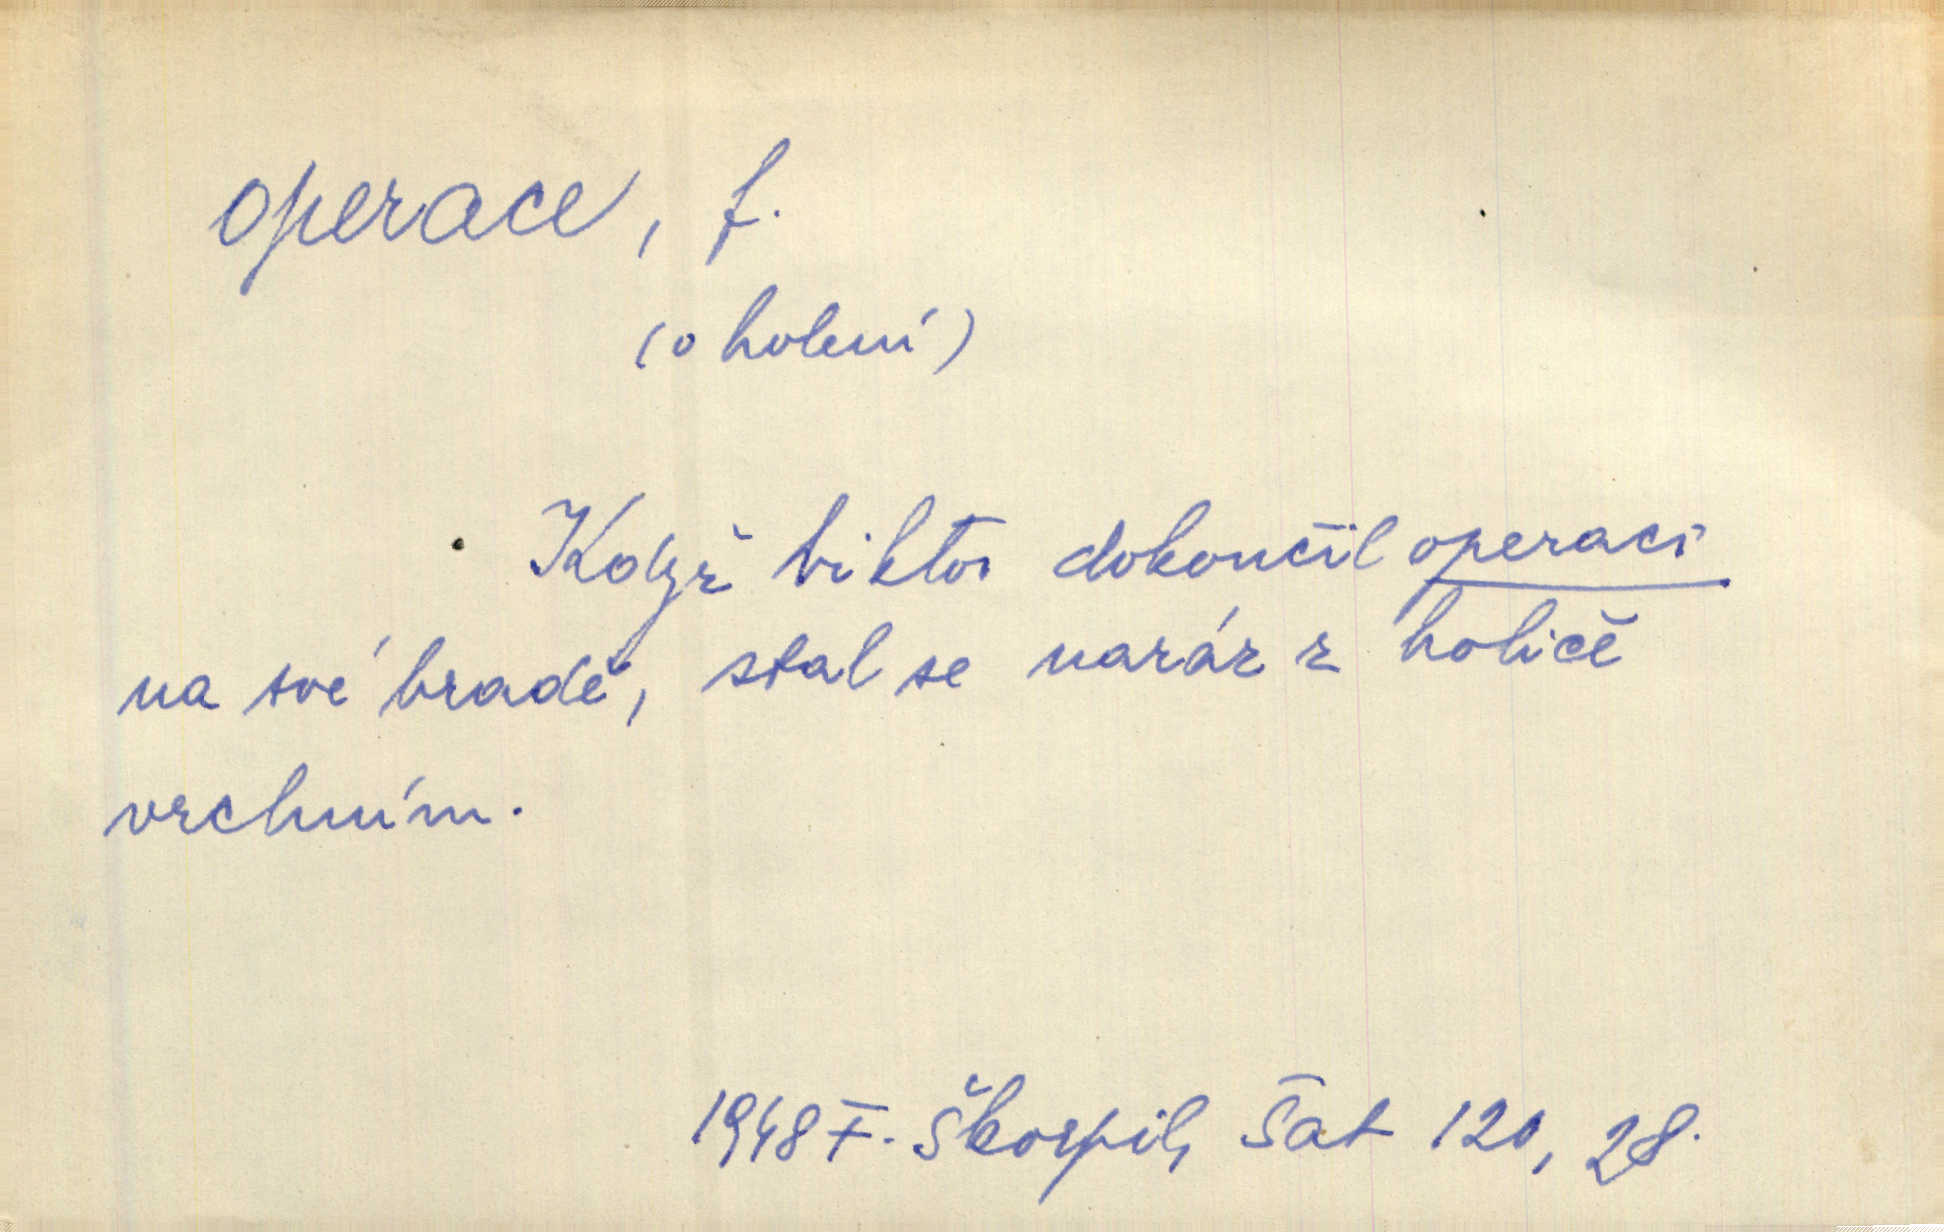 operace, f.
(o holení)
Když Viktor dokončil operaci
na své bradě, stal se naráz z holiče
vrchním.
1948 F. Škorpil, Šat 120, 28.